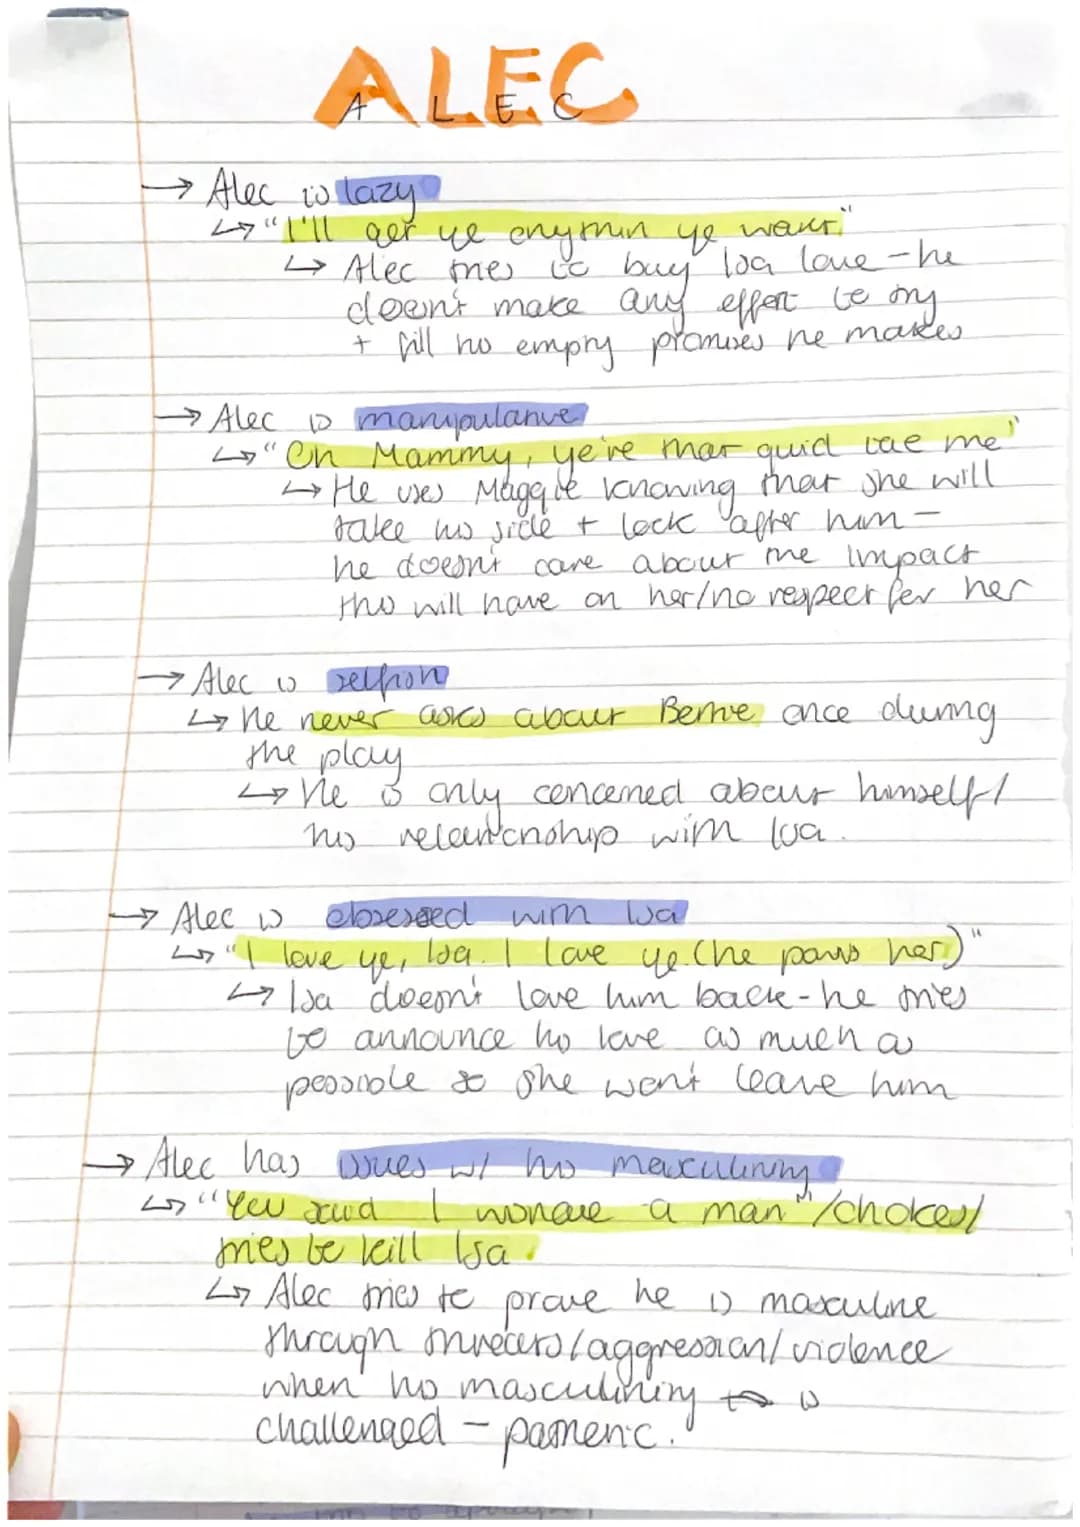 ALEC
A L E C
→ Alec is lazy
↳ "I'll get ye onythin ye want."
↳ Alec tries to buy Isa love - he
doesn't make any effort to try
+ fill his empty promises he makes
→ Alec is manipulative
↳ "Oh Mammy, ye're that guid tae me"
↳ He uses Maggie knowing that she will
take his side + look after him -
he doesn't care about the impact
this will have on her/no respect for her
→ Alec is selfish
↳ he never asks about Bertie once during
the play
↳ he is only concerned about himself/
his relationship with Isa.
→ Alec is obsessed with Isa
↳ "I love ye, Isa. I love ye. (he paws her)"
↳ Isa doesn't love him back - he tries
to announce his love as much as
possible so she won't leave him
→ Alec has issues w/ his masculinity
↳ "You said I wisnae a man"/chokes/
tries to kill Isa.
↳ Alec tries to prove he is masculine
through threats/aggression/violence
when his masculinity is
challenged - pathetic.